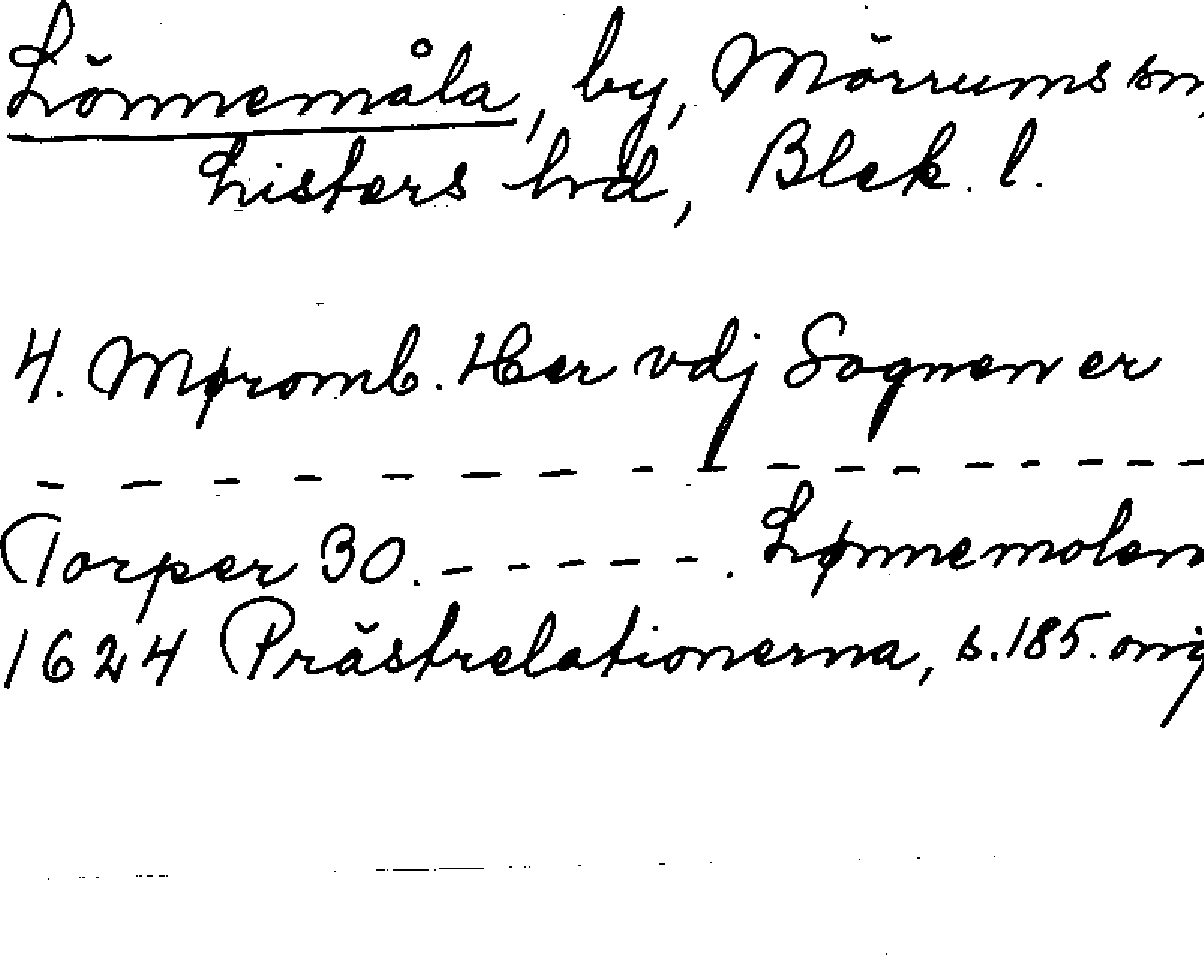 Lönnemåla, by, Mörrums sn,
Listers hd, Blek. l.
4. Møromb. Her vdj Sognen er
— — — — — — — — — — — — — — — —
Torper 30. - - - - - - . Lønnemolen
1624 Prästrelationerna, s. 185. orig